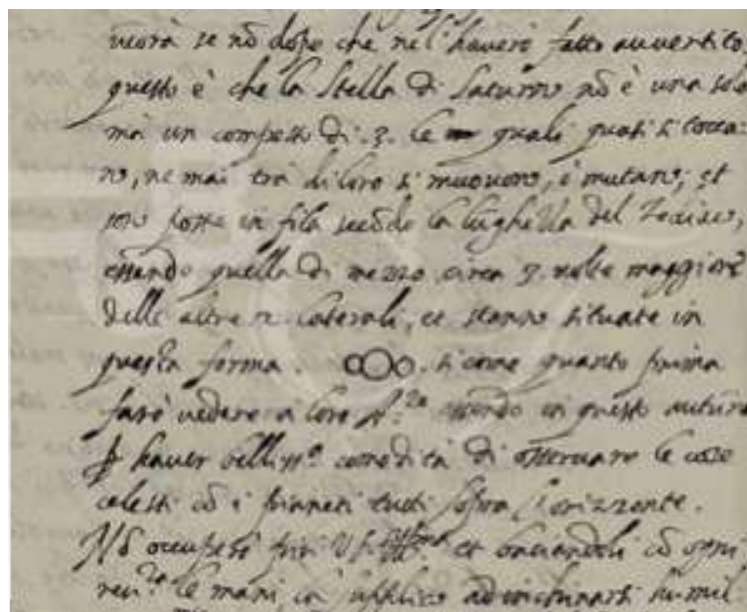 verà se nõ dopo che ne l'haverò fatto avvertito,
questo è che la stella di Saturno nõ è una sola
ma un composto di .3. le quali quasi si tocca-
no, ne mai tra di loro si muovono, o mutano; et
sono poste in fila secõdo la lũghezza del zodiaco,
essendo quella di mezzo circa 3. volte maggiore
delle altre 2 laterali, et stanno situate in
questa forma. oOo. si come quanto prima
farò vedere a loro A.ze essendo in questo autuno
ꝑ haver belliss.a comodità di osservare le cose
celesti cõ i pianeti tutti sopra l'orizzonte.
Nõ occuperò più et baciandoli cõ ogni
rev.za le mani la supplico ad inchinarsi humil